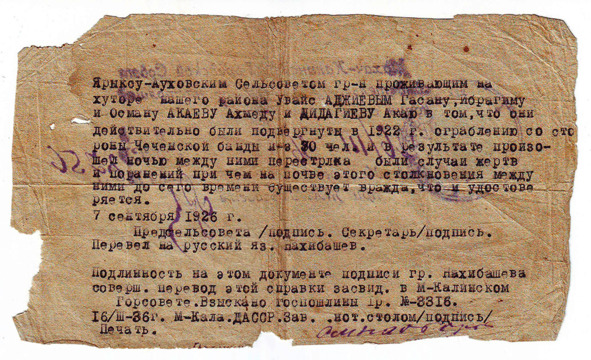 Ярыксу-Ауховским Сельсоветом гр-н проживающим на
хуторе нашего района Увайс АДЖИЕВЫМ Гасану, Ибрагиму
и Осману АКАЕВУ Ахмеду и ДИДАГИЕВУ Акаю в том, что они
действительно были подвергнуты в 1922 г. ограблению со сто
роны Чеченской банды из 30 чел. и в результате произо-
шей ночью между ними перестрлка были случаи жертв
и поранений при чем на почве этого столкновения между
ними до сего времени существует вражда, что и удостове
ряется.
7 сентября 1926 г.
Предсельсовета /подпись. Секретарь/подпись.
Перевел на русский яз. Нахибашев.
Подлинность на этом документе подписи гр. Нахибашева
соверш. перевод этой справки засвид. в М-Калинском
Горсовете. Взыскано госпошлины 1р. №-3316.
16/Ш-36г. М-Кала. ДАССР. Зав. .нот.столом/подпись/
Печать.